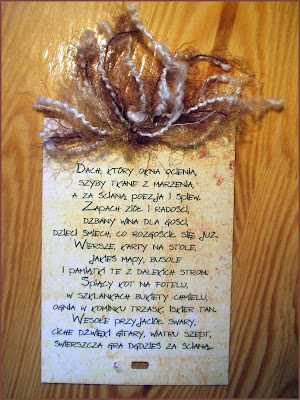 Dach, który okna ocienia,
szyby tkane z marzenia,
a za ścianą poezja i śpiew.
Zapach ziół i radości,
dzbany wina dla gości,
dzieci śmiech, co rozgościł się już.
Wiersze, karty na stole,
jakieś mapy, busole
i pamiątki te z dalekich stron.
Śpiący kot na fotelu,
w szklankach bukiety chmielu,
ognia w kominku trzask, iskier tan.
Wesołe przyjaciół swary,
ciche dźwięki gitary, wiatru szept,
świerszcza gra dgdzieś za ścianą.